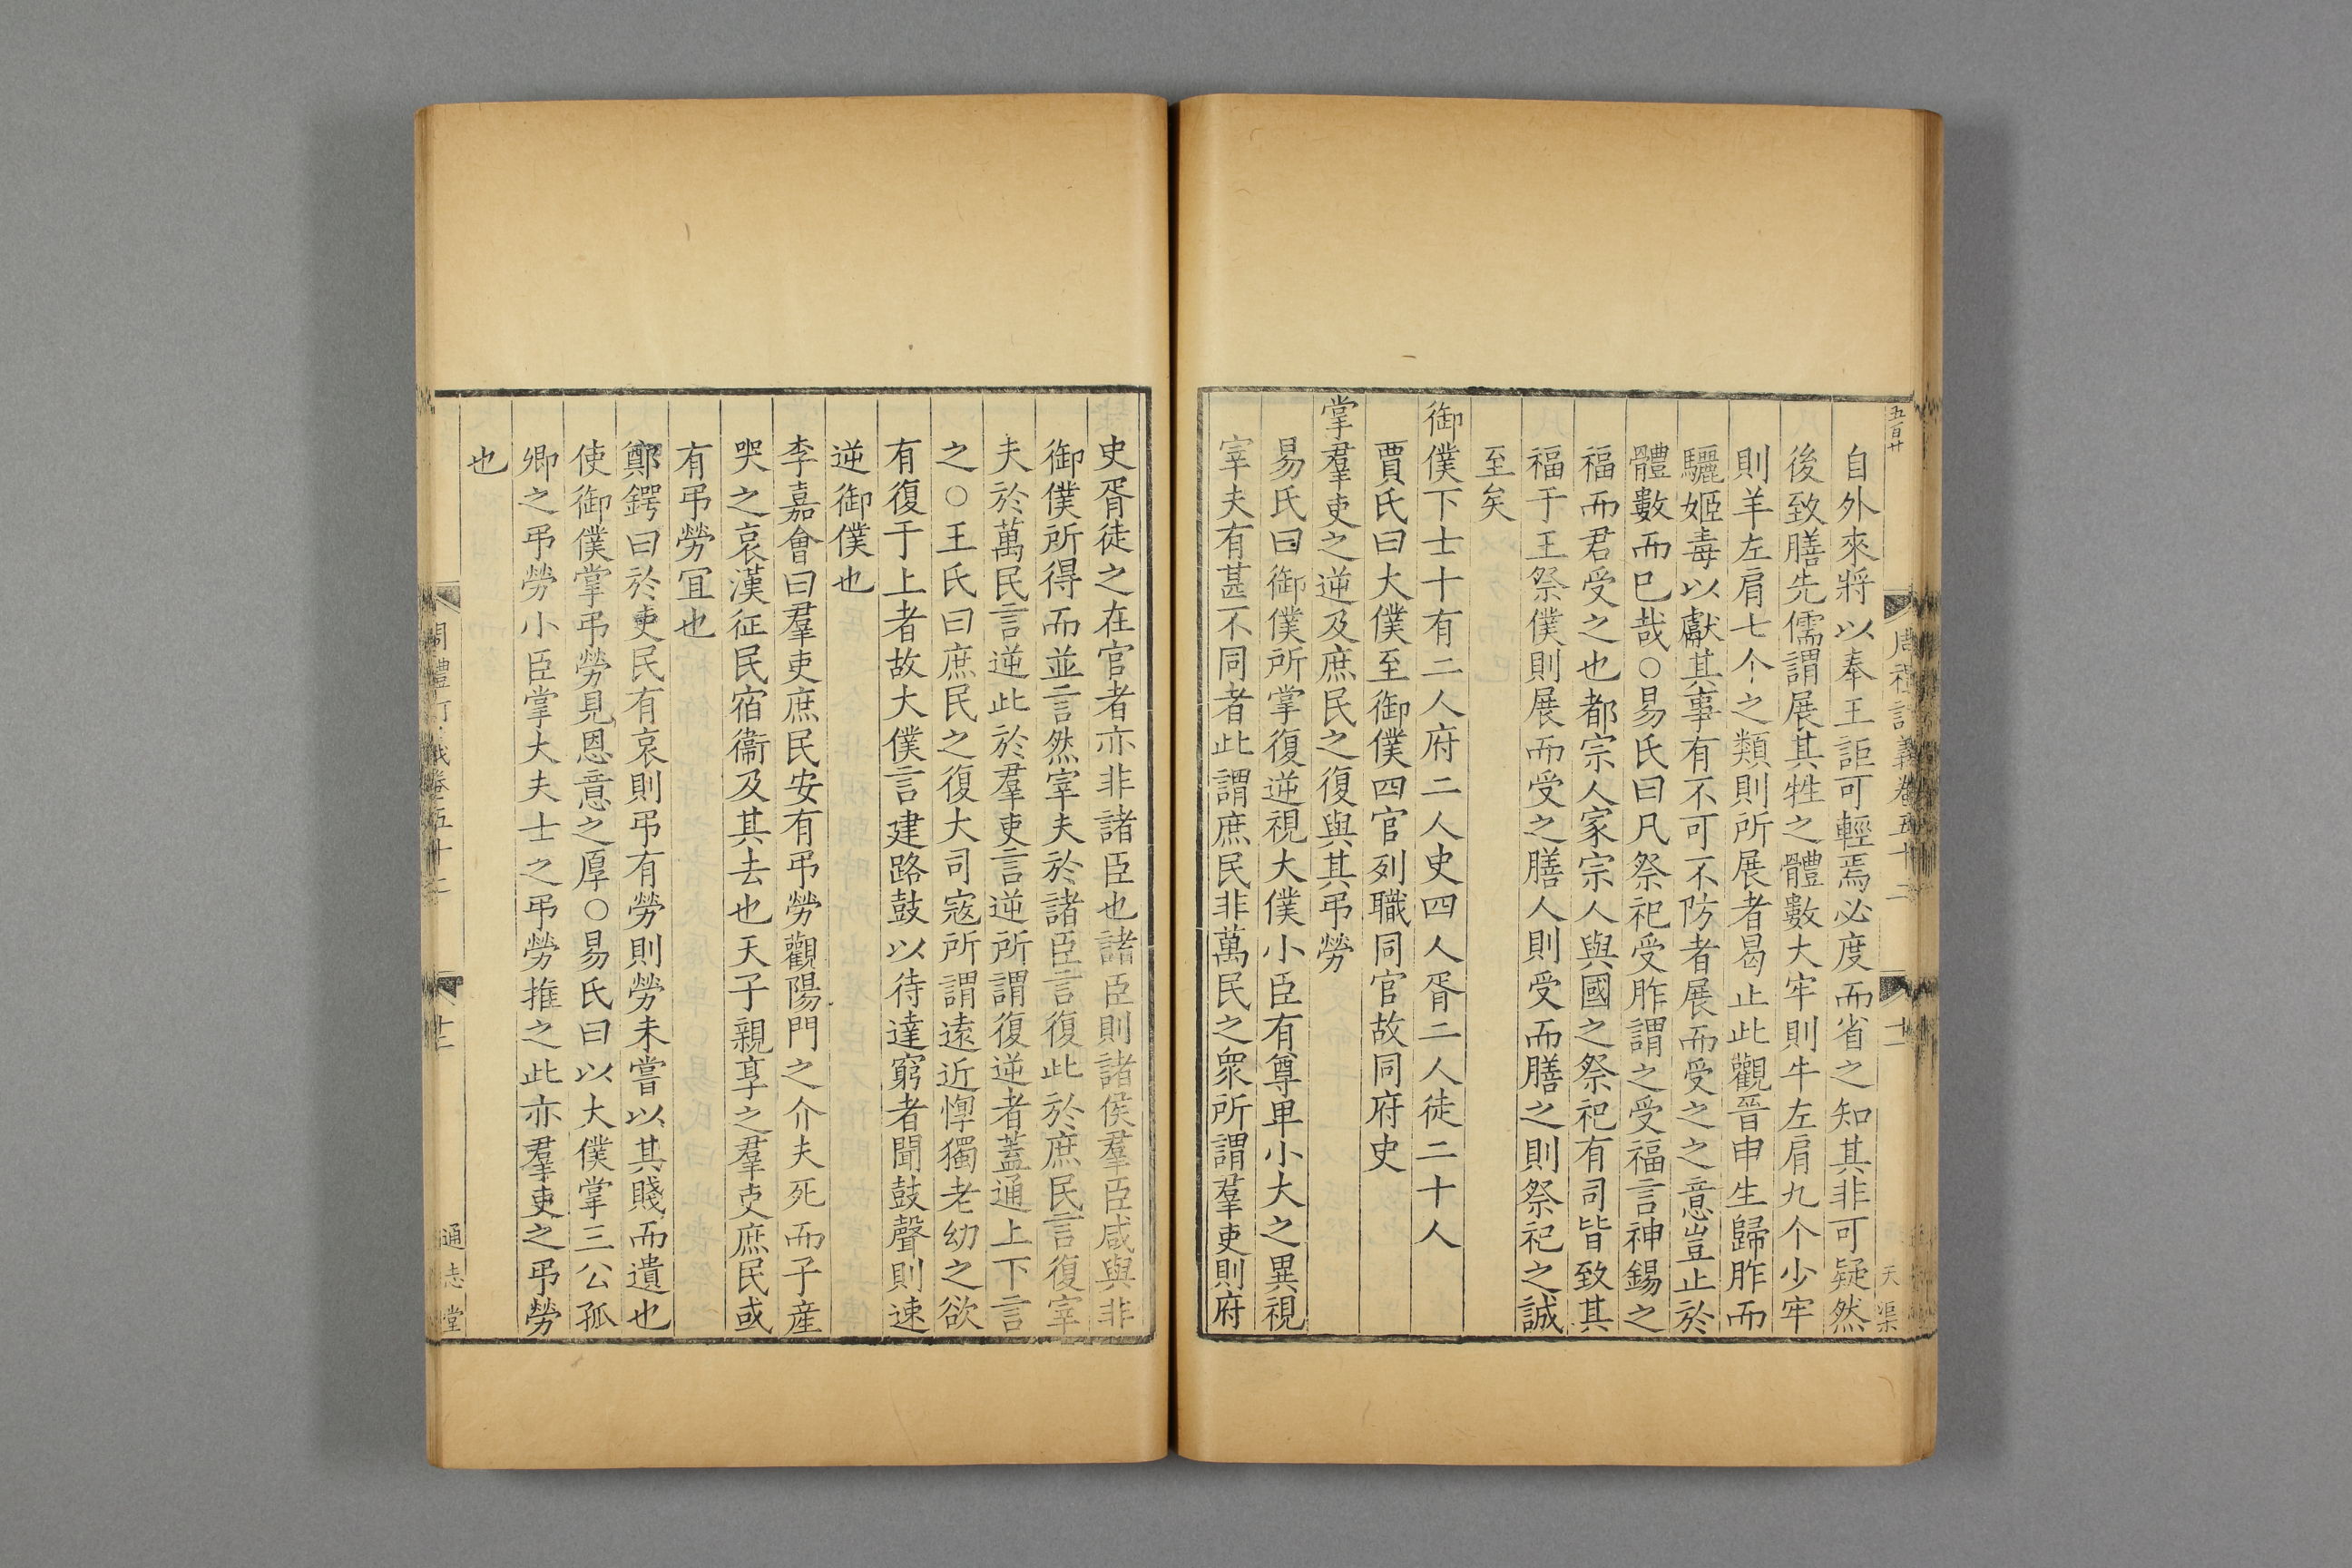 五百廿
周禮訂義卷五十二
十一
天渠
自外來將以奉王詎可輕焉必度而省之知其非可疑然
後致膳先儒謂展其牲之體數大牢則牛左肩九个少牢
則羊左肩七个之類則所展者曷止此觀晉申生歸胙而
驪姬毒以獻其事有不可不防者展而受之之意豈止於
體數而已哉○易氏曰凡祭祀受胙謂之受福言神錫之
福而君受之也都宗人家宗人與國之祭祀有司皆致其
福于王祭僕則展而受之膳人則受而膳之則祭祀之誠
至矣
御僕下士十有二人府二人史四人胥二人徒二十人
賈氏曰大僕至御僕四官列職同官故同府史
掌羣吏之逆及庶民之復與其弔勞
易氏曰御僕所掌復逆視大僕小臣有尊卑小大之異視
宰夫有甚不同者此謂庶民非萬民之衆所謂羣吏則府
史胥徒之在官者亦非諸臣也諸臣則諸侯羣臣咸與非
御僕所得而並言然宰夫於諸臣言復此於庶民言復宰
夫於萬民言逆此於羣吏言逆所謂復逆者蓋通上下言
之○王氏曰庶民之復大司寇所謂遠近惸獨老幼之欲
有復于上者故大僕言建路鼓以待達窮者聞鼓聲則速
逆御僕也
李嘉會曰羣吏庶民安有弔勞觀陽門之介夫死而子產
哭之哀漢征民宿衞及其去也天子親享之羣吏庶民或
有弔勞宜也
鄭鍔曰於吏民有哀則弔有勞則勞未嘗以其賤而遺也
使御僕掌弔勞見恩意之厚○易氏曰以大僕掌三公孤
卿之弔勞小臣掌大夫士之弔勞推之此亦羣吏之弔勞
也
周禮訂義卷五十二
十二
通志堂